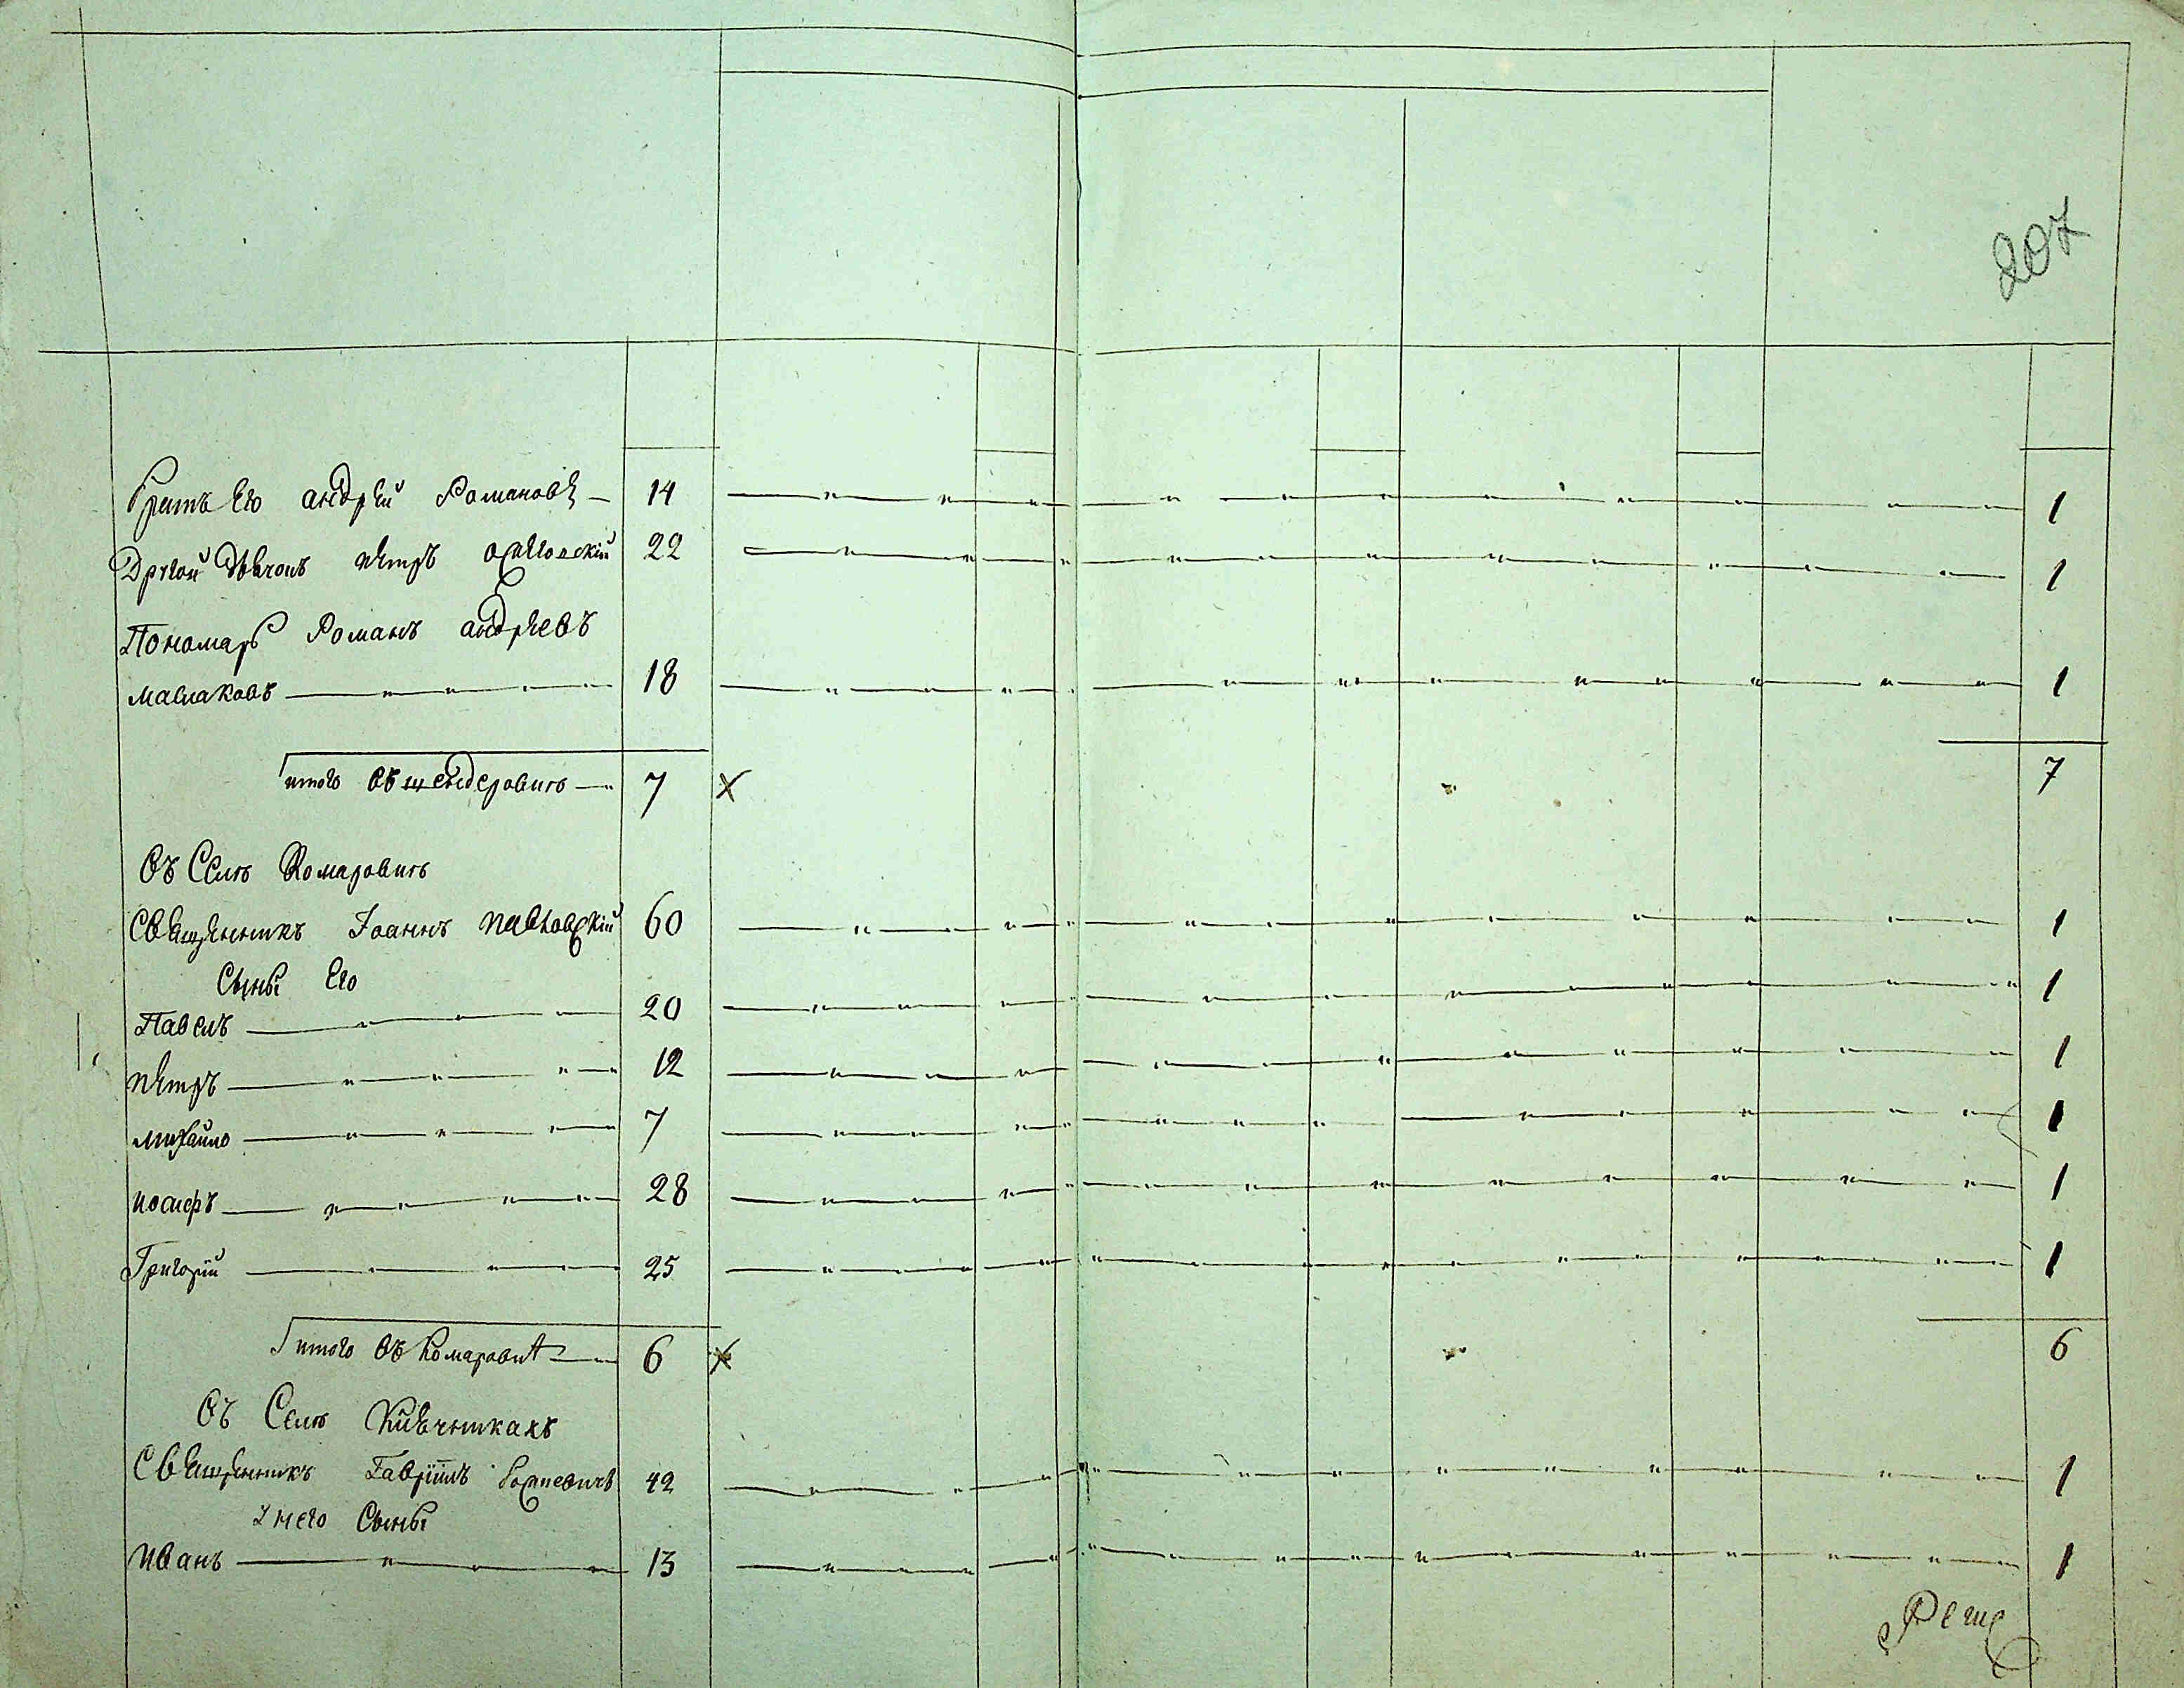 207
братъ Его андрЕй Романовъ 14 1
Другой дьячокъ пЕтръ 22 1
Пономарь Романъ андрЕевъ
маслаковъ 18 1
итого въ шендеровкѣ 7 × 7
Въ Селѣ Комаровкѣ
СвЕщЕнникъ Іоаннъ павловскій 60 1
Сыны Его
Павелъ 20 1
пЕтръ 12 1
михайло 7 1
иосифъ 28 1
Григорій 25 1
итого въ Комаровкѣ 6 × 6
Въ Селѣ
СвЕщЕнникъ Гавріилъ 42 1
У него Сыны
иванъ 13 1